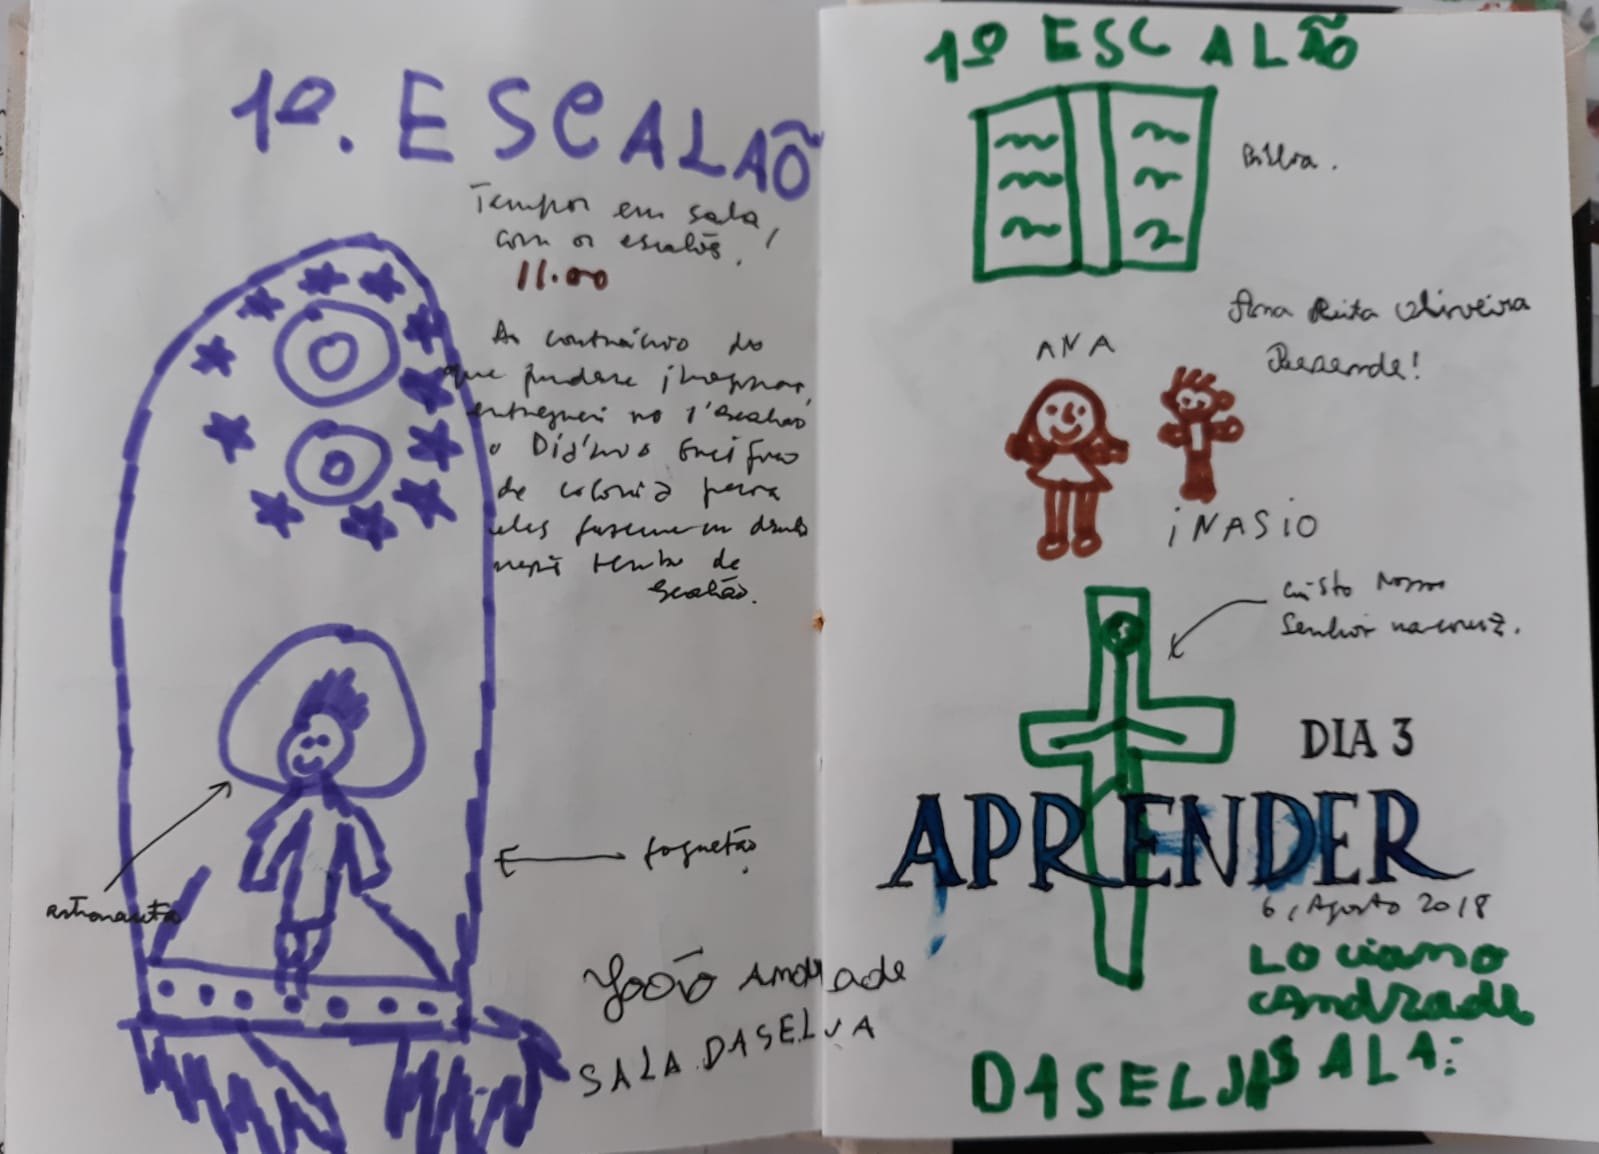 1º. ESCALAÕ
Tempor em sala,
com os escalões.
11.00
Ao contrário do
que pudesse imaginar,
entreguei no 1º escalão
o Diário Gráfico
de colonia para
eles fazerem um
de
escalão.
astronauta
foguetão.
João Andrade
SALA DASELVA
1º ESCALÃO
Bíblia.
Ana Rita Oliveira
Resende!
ANA
iNASIO
Cristo Nosso
Senhor na cruz.
DIA 3
APRENDER
6, Agosto 2018
LOciano
Andrade
DASELVA SALA: